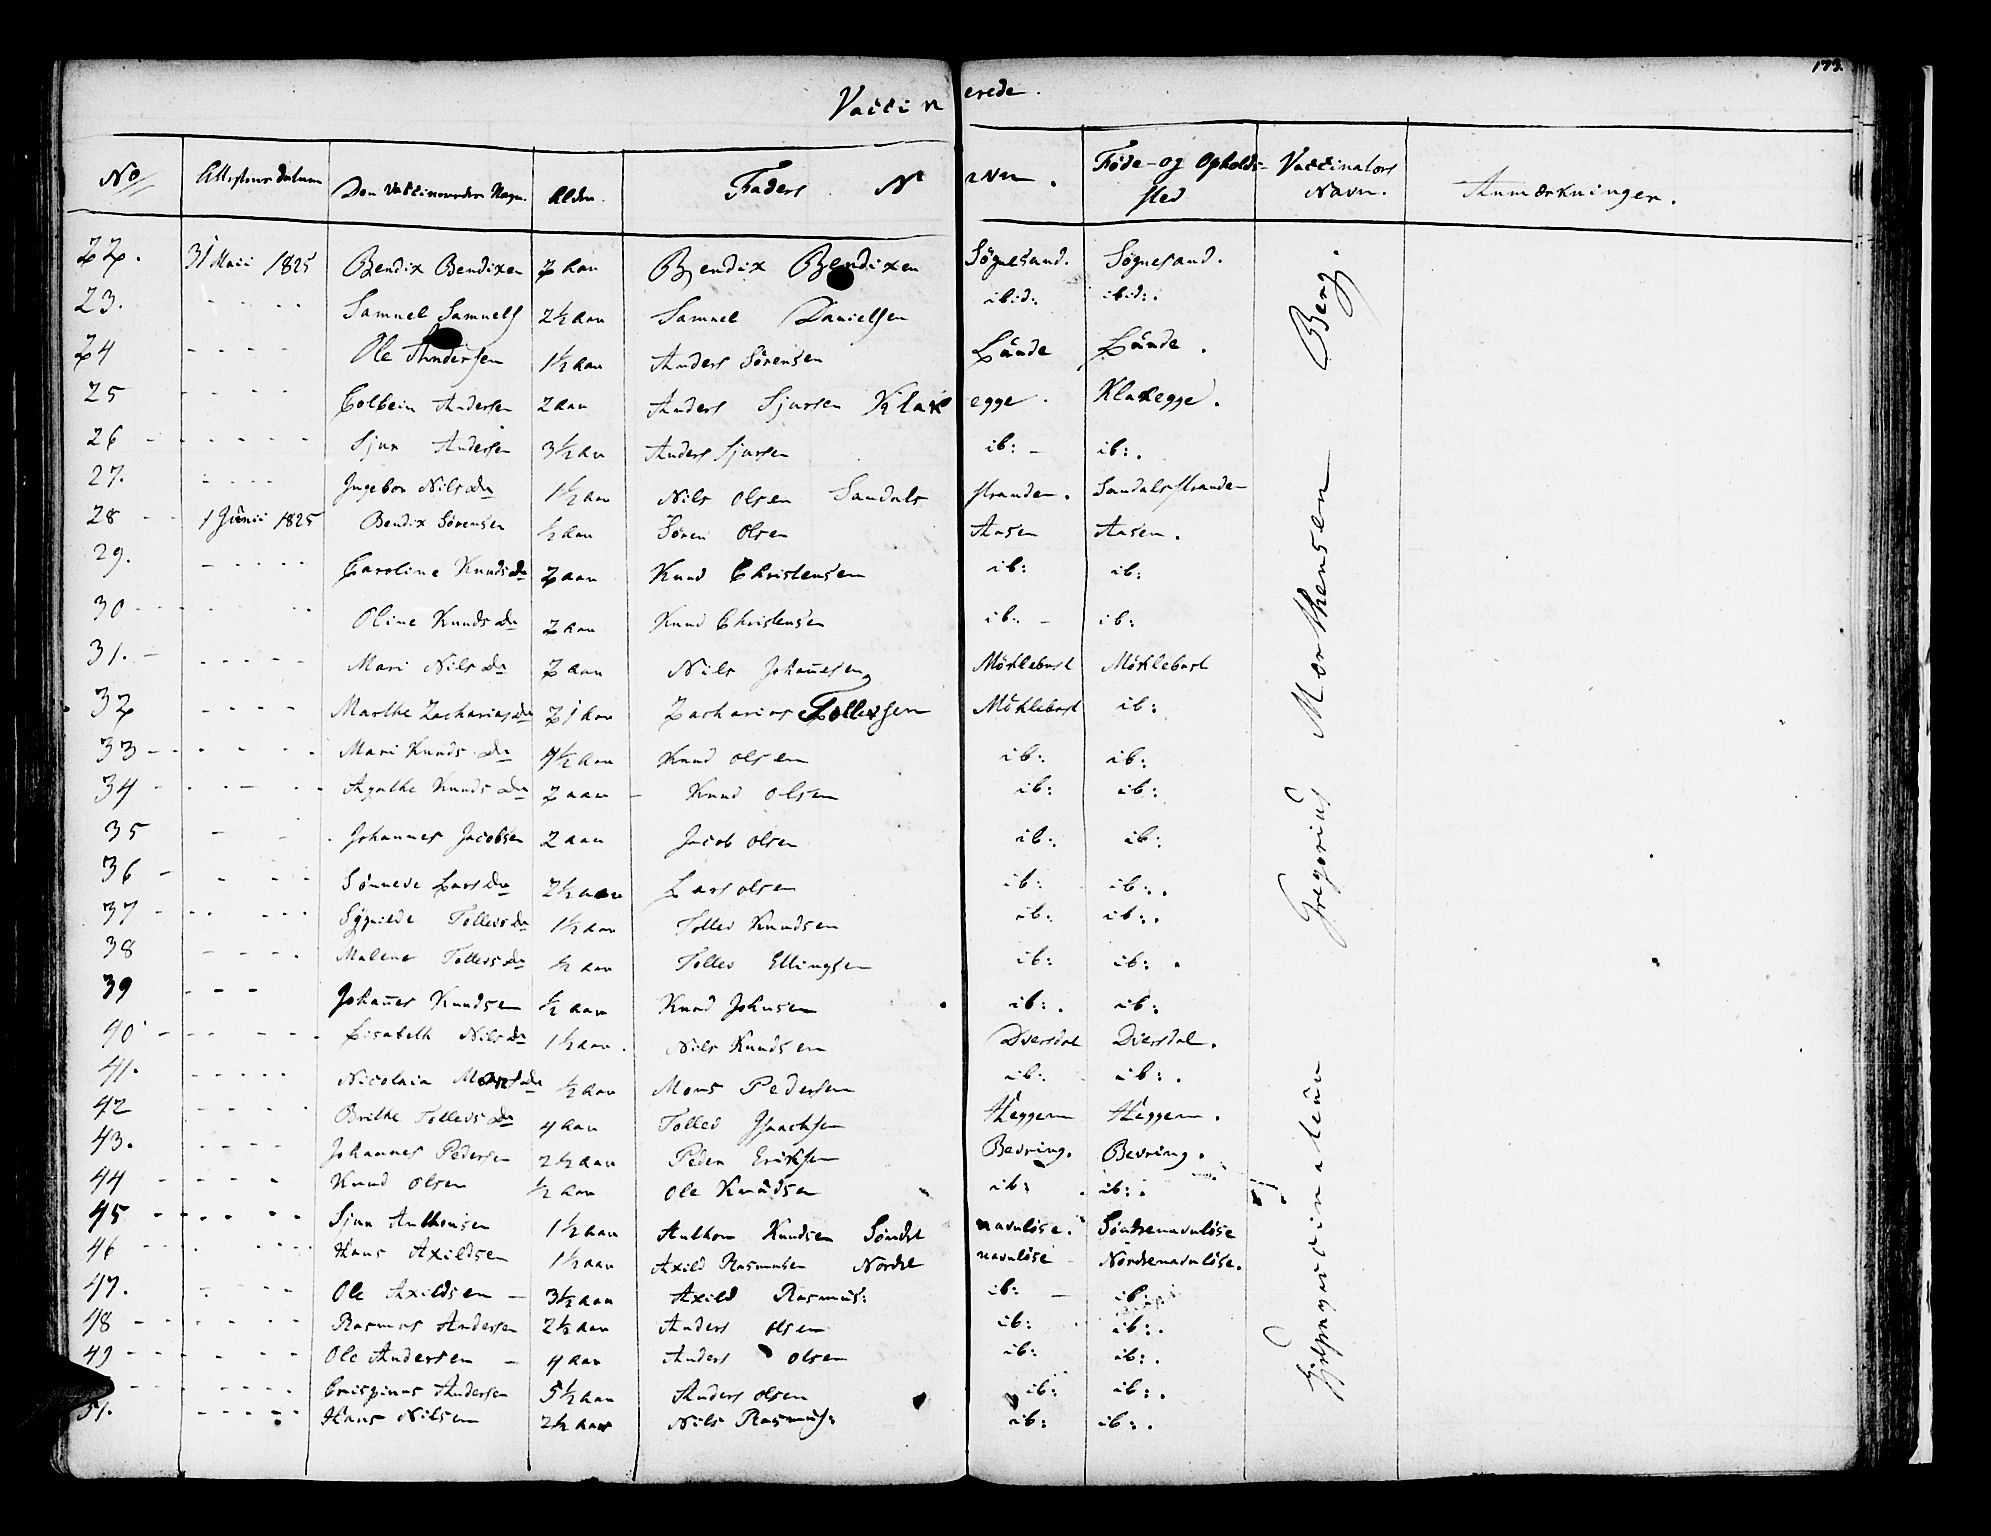 173.
Vaccinerede.
No Attestens datum Den Vaccinerendes Nagn. Alder. Faders Navn. Føde- og Opholds- Vaccinators Anmærkninger.
sted Navn.
22. 31 Maii 1825 Bendix Bendixen 2 aar Bendix Bendixen Søgnesand. Søgnesand.
23. - - - - Samuel Samuels 2½ aar Samuel Danielsen ibid: ibid:.
24 - - - - Ole Andersen 1½ aar Anders Sørensen Lunde Lunde.
25 - - - - Colbein Andersen 2 aar Anders Sjursen Klakegge. Klakegge.
26 - - - - - Sjur Andersen 3½ aar Anders Sjursen ib: - ib:.
27. - - - - Ingebor Nils Dr 1½ aar Nils Olsen Sandalsstranden. Sandalsstranden
28 - - 1 Junii 1825 Bendix Sørensen ½ aar Søren Olsen Aasen Aasen.
29. - - - - - Caroline Knuds Dr 2 aar Knud Christensen ib: ib:
30 - - - - - Oline Knuds Dr 2 aar Knud Christensen ib: - ib:
31. - - - - - - Mari Nils Dr 2 aar Nils Johanesen Møklebust Møklebust
32 - - - - Marthe Zacharias Dr 21 aar Zacharias Tollevsen Møklebust ib:
33 - - - - - - Mari Knuds Dr 4½ aar Knud Olsen ib: ib:
34 - - - - - - Agathe Knuds Dr 2 aar - Knud Olsen ib: ib:
35 - - . Johannes Jacobsen 2 aar Jacob Olsen ib: ib:
36 - - - - Sønneve Lars Dr 2½ aar Lars Olsen ib: ib:.
37 - - - - - - Sygnilde Tollevs Dr 1½ aar Tollev Knudsen ib: ib:.
38 - - - - Malene Tollevs Dr ½ aar Tollev Ellingsen ib: ib:.
39 - - - Johanes Knudsen ½ aar Knud Johnsen ib:. ib:
40 - - - - - - Lisabeth Nils Dr 1½ aar. Nils Knudsen Dversdal Dversdal.
41. - - - - - Nicolaia Mons Dr ½ aar Mons Pedersen ib: ib:.
42 - - - - Brithe Tollevs Dr 4 aar Tollev Isaachsen Heggem Heggem.
43. - - - - Johannes Pedersen 2½ aar Peder Eriksen Bevring. Bevring.
44 - - - - - Knud Olsen ½ aar Ole Knudsen ib: ib:.
45 - - - - - - Sjur Anthonsen 1½ aar Anthon Knudsen Søndrenavnløse. Søndrenavnløse
46 - - - - - - Hans Axildsen 1½ aar Axild Rasmusen Nordrenavnløse Nordrenavnløse.
47. - - - Ole Axildsen - 3½ aar Axild Rasmus: ib: - ib:
48 - - - - - - Rasmus Andersen 2½ aar Anders Olsen ib: ib:.
49 - - - - - - Ole Andersen - 4 aar Anders Olsen ib: ib:.
- - - - - - Crispinus Andersen 5½ aar Anders Olsen ib: ib:.
51. - - - - - Hans Nilsen 2½ aar Nils Rasmus: ib: ib:.
Gregorius Morthensen Berg.